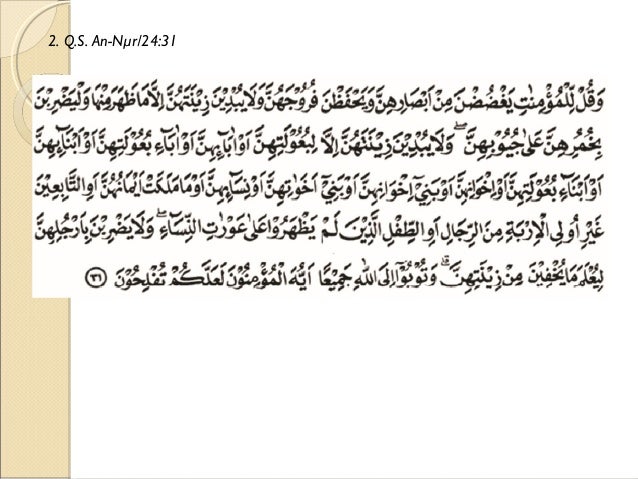 2. Q.S. An-Nµr/24:31
وَقُلْ لِّلْمُؤْمِنٰتِ يَغْضُضْنَ مِنْ اَبْصَارِهِنَّ وَيَحْفَظْنَ فُرُوْجَهُنَّ وَلَا يُبْدِيْنَ زِيْنَتَهُنَّ اِلَّا مَا ظَهَرَ مِنْهَا وَلْيَضْرِبْنَ
بِخُمُرِهِنَّ عَلٰى جُيُوْبِهِنَّ ۖ وَلَا يُبْدِيْنَ زِيْنَتَهُنَّ اِلَّا لِبُعُوْلَتِهِنَّ اَوْ اٰبَاۤىِٕهِنَّ اَوْ اٰبَاۤءِ بُعُوْلَتِهِنَّ اَوْ اَبْنَاۤىِٕهِنَّ
اَوْ اَبْنَاۤءِ بُعُوْلَتِهِنَّ اَوْ اِخْوَانِهِنَّ اَوْ بَنِيْٓ اِخْوَانِهِنَّ اَوْ بَنِيْٓ اَخَوٰتِهِنَّ اَوْ نِسَاۤىِٕهِنَّ اَوْ مَا مَلَكَتْ اَيْمَانُهُنَّ اَوِ التَّابِعِيْنَ
غَيْرِ اُولِى الْاِرْبَةِ مِنَ الرِّجَالِ اَوِ الطِّفْلِ الَّذِيْنَ لَمْ يَظْهَرُوْا عَلٰى عَوْرٰتِ النِّسَاۤءِ ۖ وَلَا يَضْرِبْنَ بِاَرْجُلِهِنَّ
لِيُعْلَمَ مَا يُخْفِيْنَ مِنْ زِيْنَتِهِنَّ ۗ وَتُوْبُوْٓا اِلَى اللّٰهِ جَمِيْعًا اَيُّهَ الْمُؤْمِنُوْنَ لَعَلَّكُمْ تُفْلِحُوْنَ ﴿٣١﴾